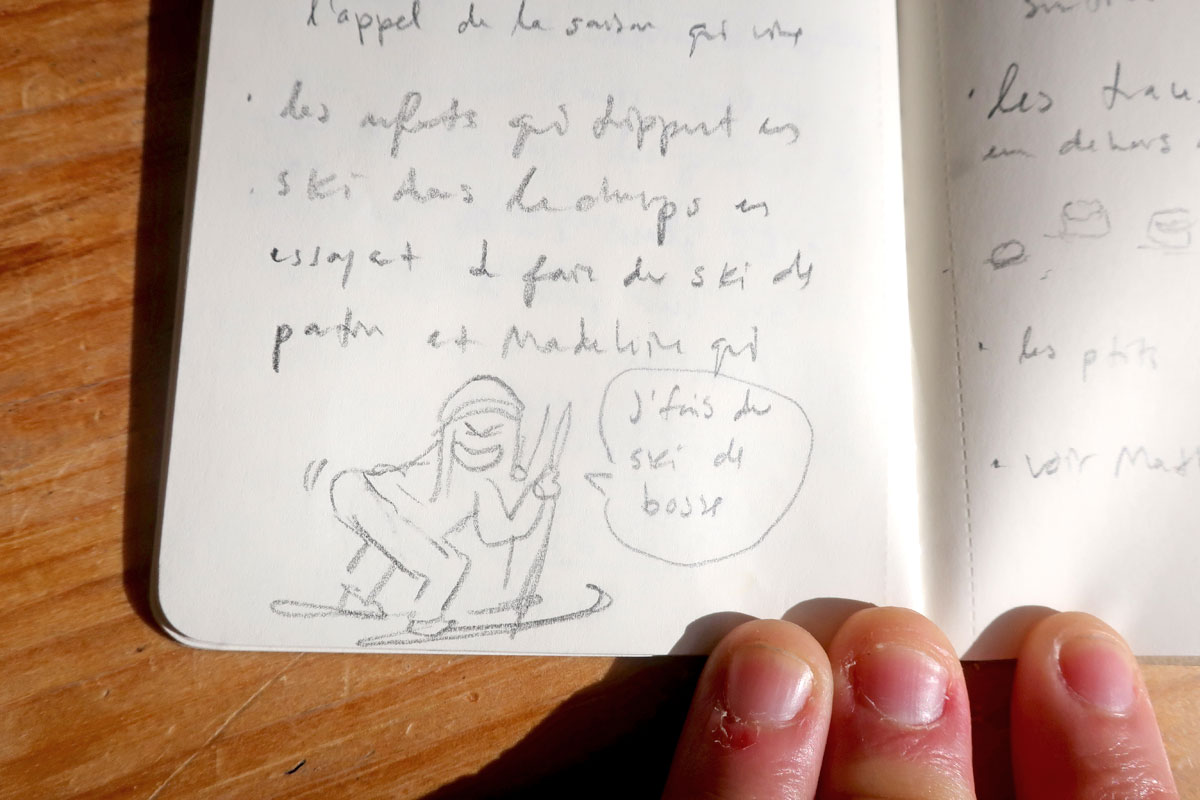 l'appel de la saison qui vire
• des enfants qui trippent en
ski dans le champs en
essayant de faire du ski de
patin et Madeleine qui
J'fais du
ski de
bosse
• les
en dehors
• les ptits
• voir